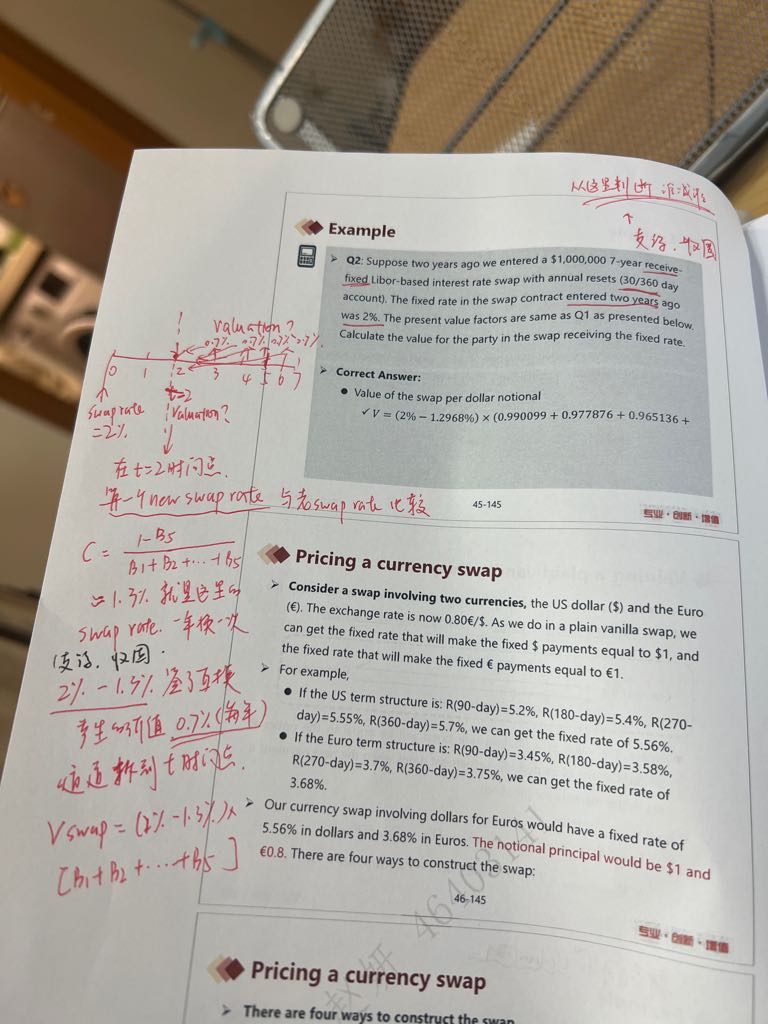 从这里判断谁减谁
↑
支浮.收固
Example
Q2: Suppose two years ago we entered a $1,000,000 7-year receive-
fixed Libor-based interest rate swap with annual resets (30/360 day
account). The fixed rate in the swap contract entered two years ago
was 2%. The present value factors are same as Q1 as presented below.
Calculate the value for the party in the swap receiving the fixed rate.
Correct Answer:
Value of the swap per dollar notional
✓ V = (2% − 1.2968%) × (0.990099 + 0.977876 + 0.965136 +
45-145
专业·创新·增值
valuation?
0.7% 0.7% 0.7% 0.7%
0 1 2 3 4 5 6 7
t=2
swap rate
=2%
valuation?
在t=2时间点.
算一个new swap rate 与老swap rate 比较
C = 1-B5 / B1+B2+...+B5
= 1.3% 就是这里的
swap rate. 一年换一次
支浮.收固.
2% - 1.3%
产生的价值 0.7% (每年)
折到t时间点.
Vswap = (2%-1.3%)×
[B1+B2+...+B5]
Pricing a currency swap
Consider a swap involving two currencies, the US dollar ($) and the Euro
(€). The exchange rate is now 0.80€/$. As we do in a plain vanilla swap, we
can get the fixed rate that will make the fixed $ payments equal to $1, and
the fixed rate that will make the fixed € payments equal to €1.
For example,
If the US term structure is: R(90-day)=5.2%, R(180-day)=5.4%, R(270-
day)=5.55%, R(360-day)=5.7%, we can get the fixed rate of 5.56%.
If the Euro term structure is: R(90-day)=3.45%, R(180-day)=3.58%,
R(270-day)=3.7%, R(360-day)=3.75%, we can get the fixed rate of
3.68%.
Our currency swap involving dollars for Euros would have a fixed rate of
5.56% in dollars and 3.68% in Euros. The notional principal would be $1 and
€0.8. There are four ways to construct the swap:
46-145
专业·创新·增值
Pricing a currency swap
There are four ways to construct the swap